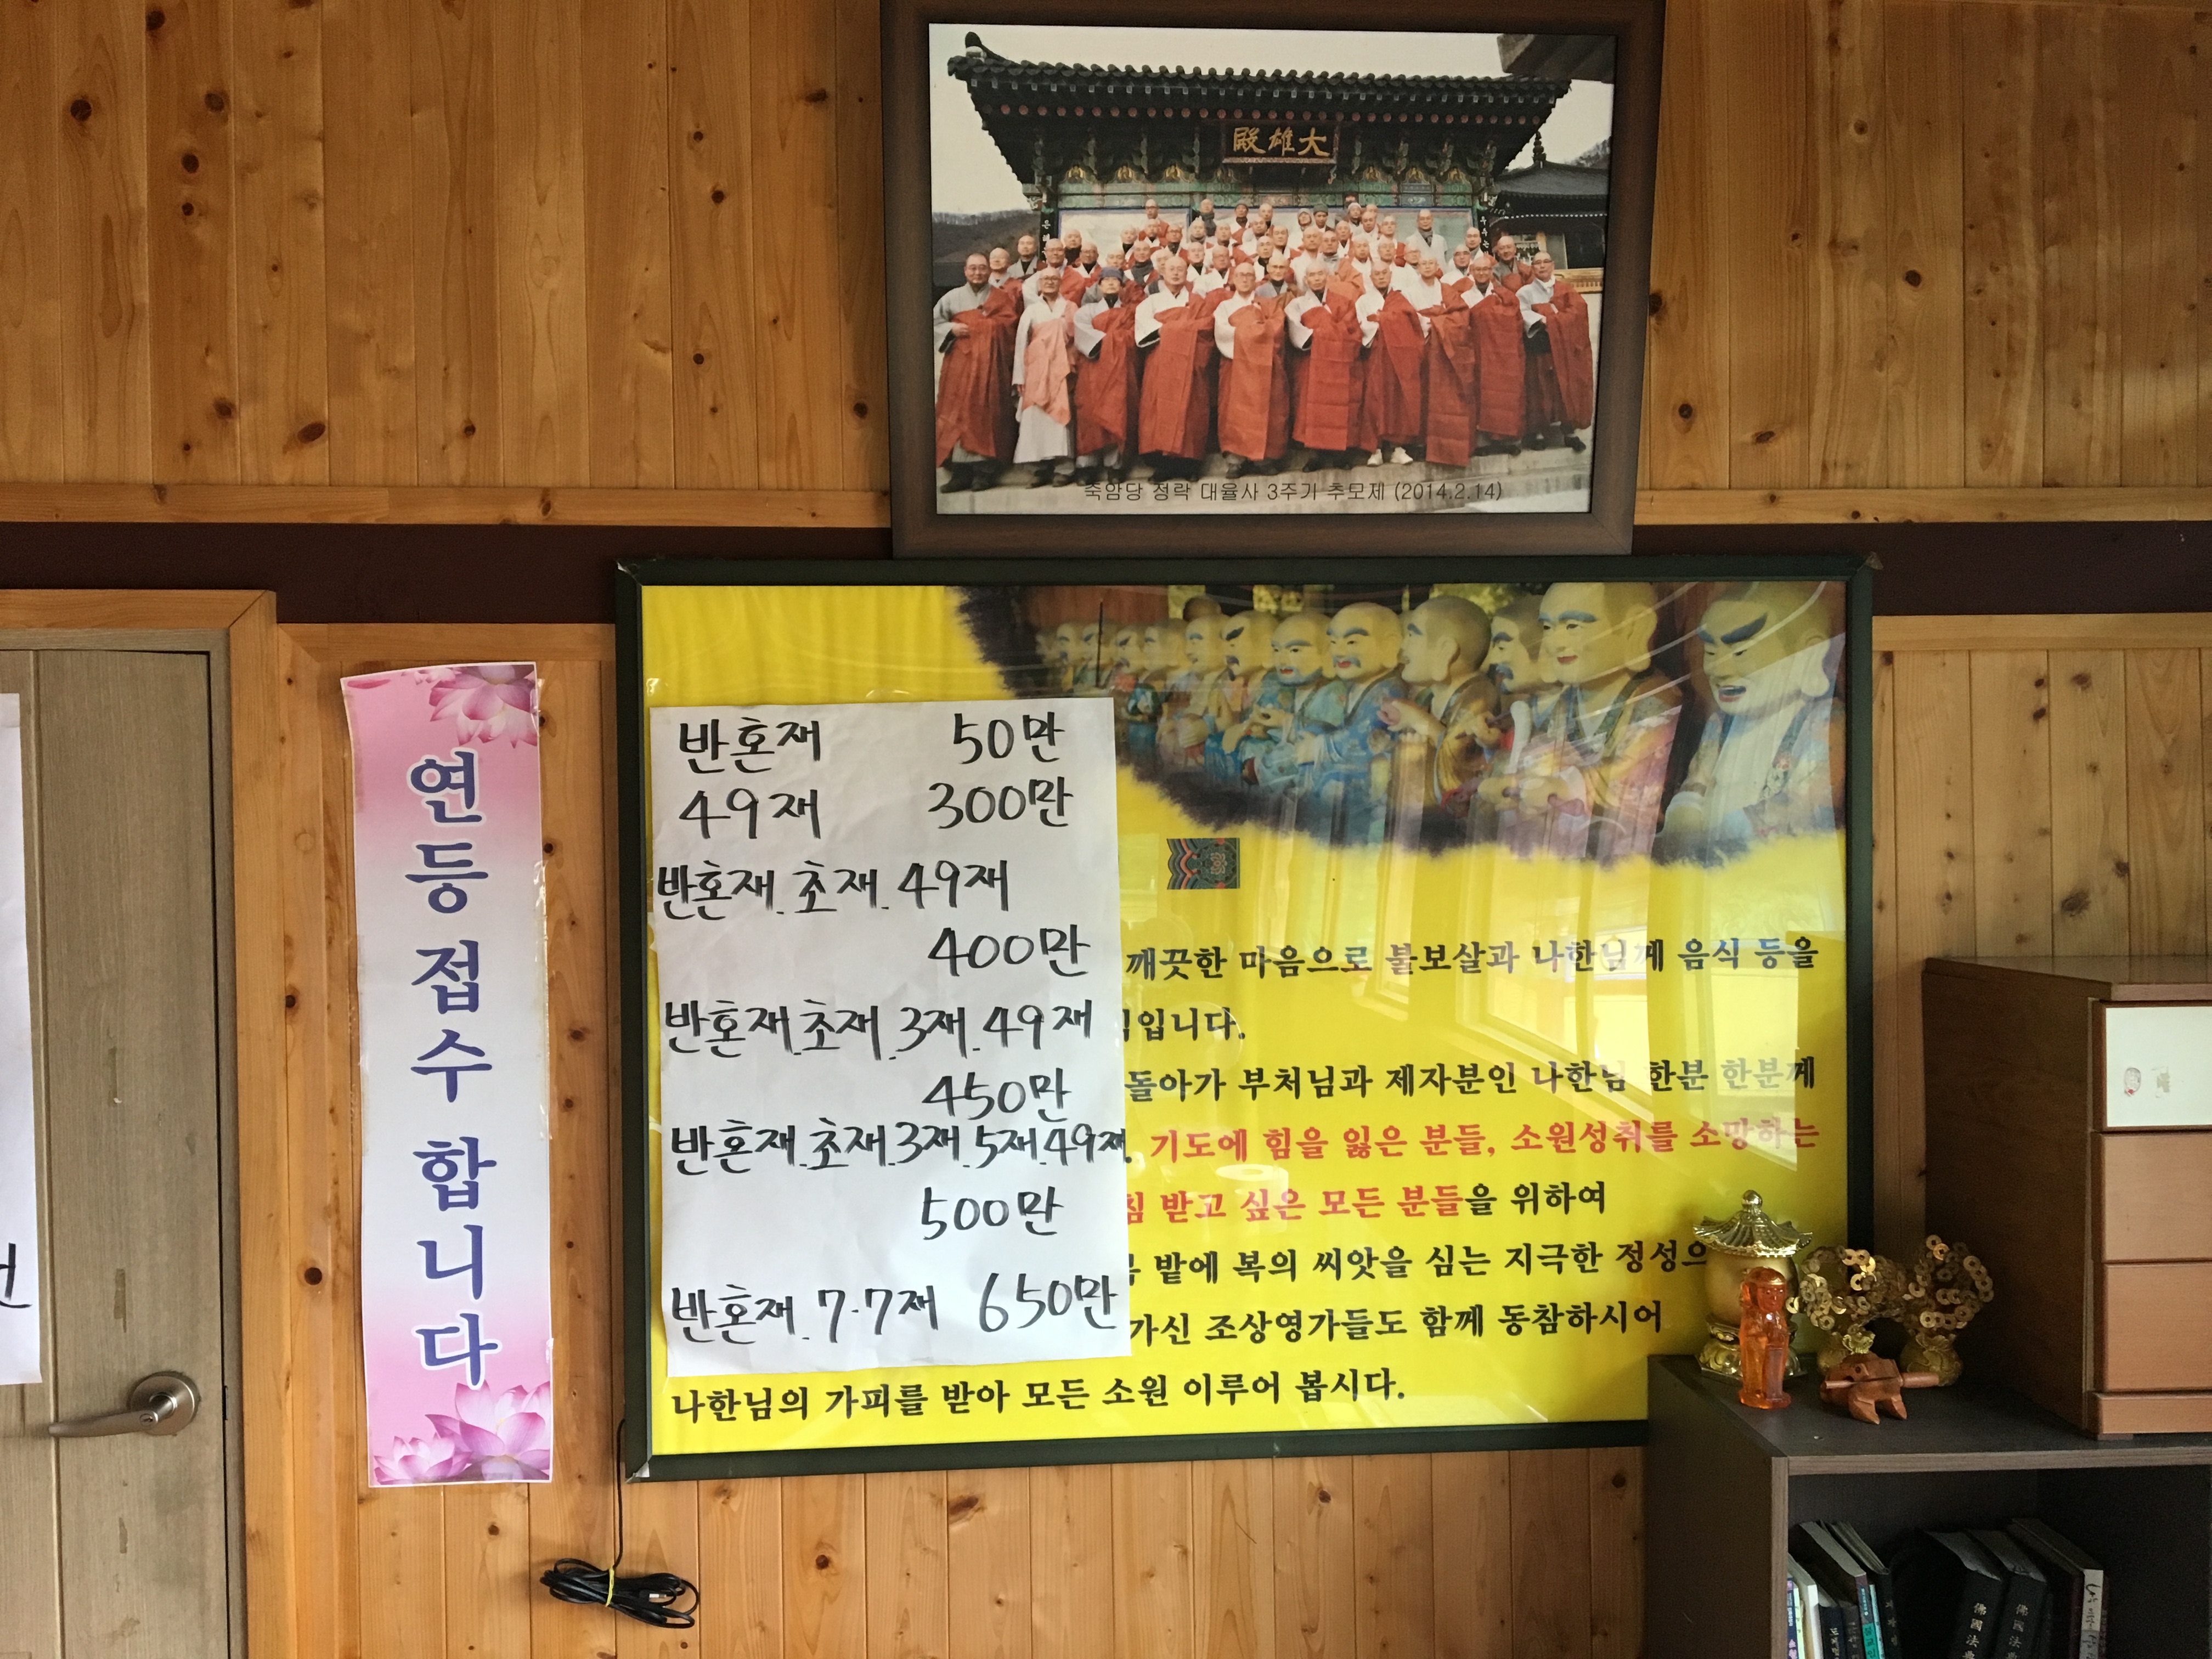 大雄殿
죽암당 정락 대율사 3주기 추모제 (2014.2.14)
연등접수합니다
반혼재 50만
49재 300만
반혼재.초재.49재
400만
반혼재.초재.3재.49재
450만
반혼재.초재.3재.5재.49재
500만
반혼재.7.7재 650만
깨끗한 마음으로 불보살과 나한님께 음식 등을
입니다.
돌아가 부처님과 제자분인 나한님 한분 한분께
기도에 힘을 잃은 분들, 소원성취를 소망하는
받고 싶은 모든 분들을 위하여
밭에 복의 씨앗을 심는 지극한 정성으
가신 조상영가들도 함께 동참하시어
나한님의 가피를 받아 모든 소원 이루어 봅시다.
佛國法
佛國法